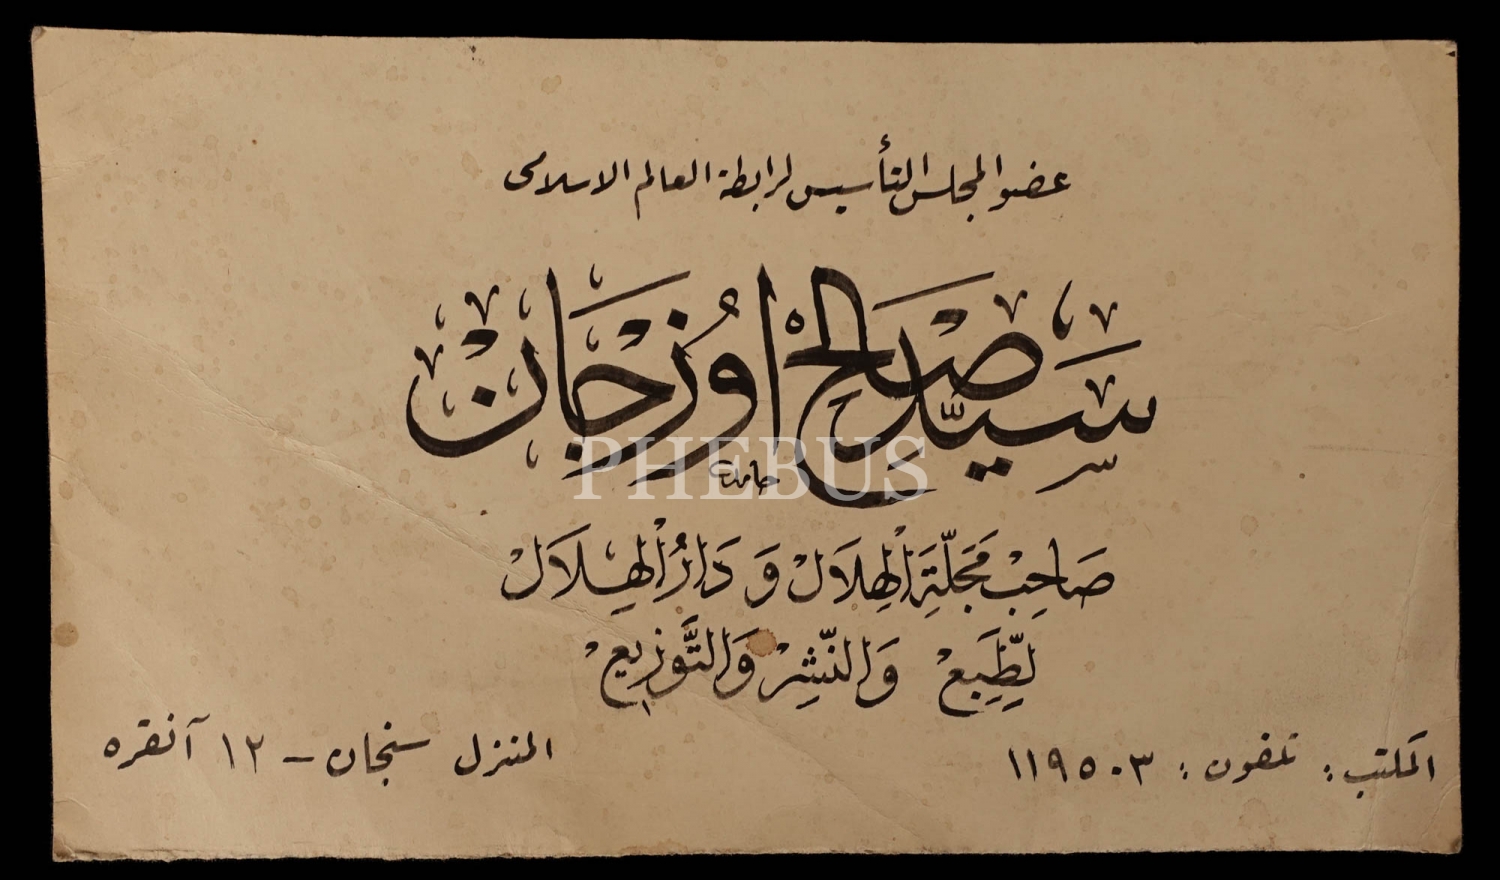 عضو المجلس التأسيس لرابطة العالم الاسلامى
سَيّدصَالِحْ اوُزجَانْ
حامد
PHEBUS
صَاحِبْ مَجَلّةِ اَلْهِلَالْ وَ دَارُ الْهِلَالْ
لِطَّبِعْ وَالنّشِرْ وَالتَّوَزِيعْ
المكتب: تلفون: ١١٩٥٠٣
المنزل سنجان – ١٢ آنقره